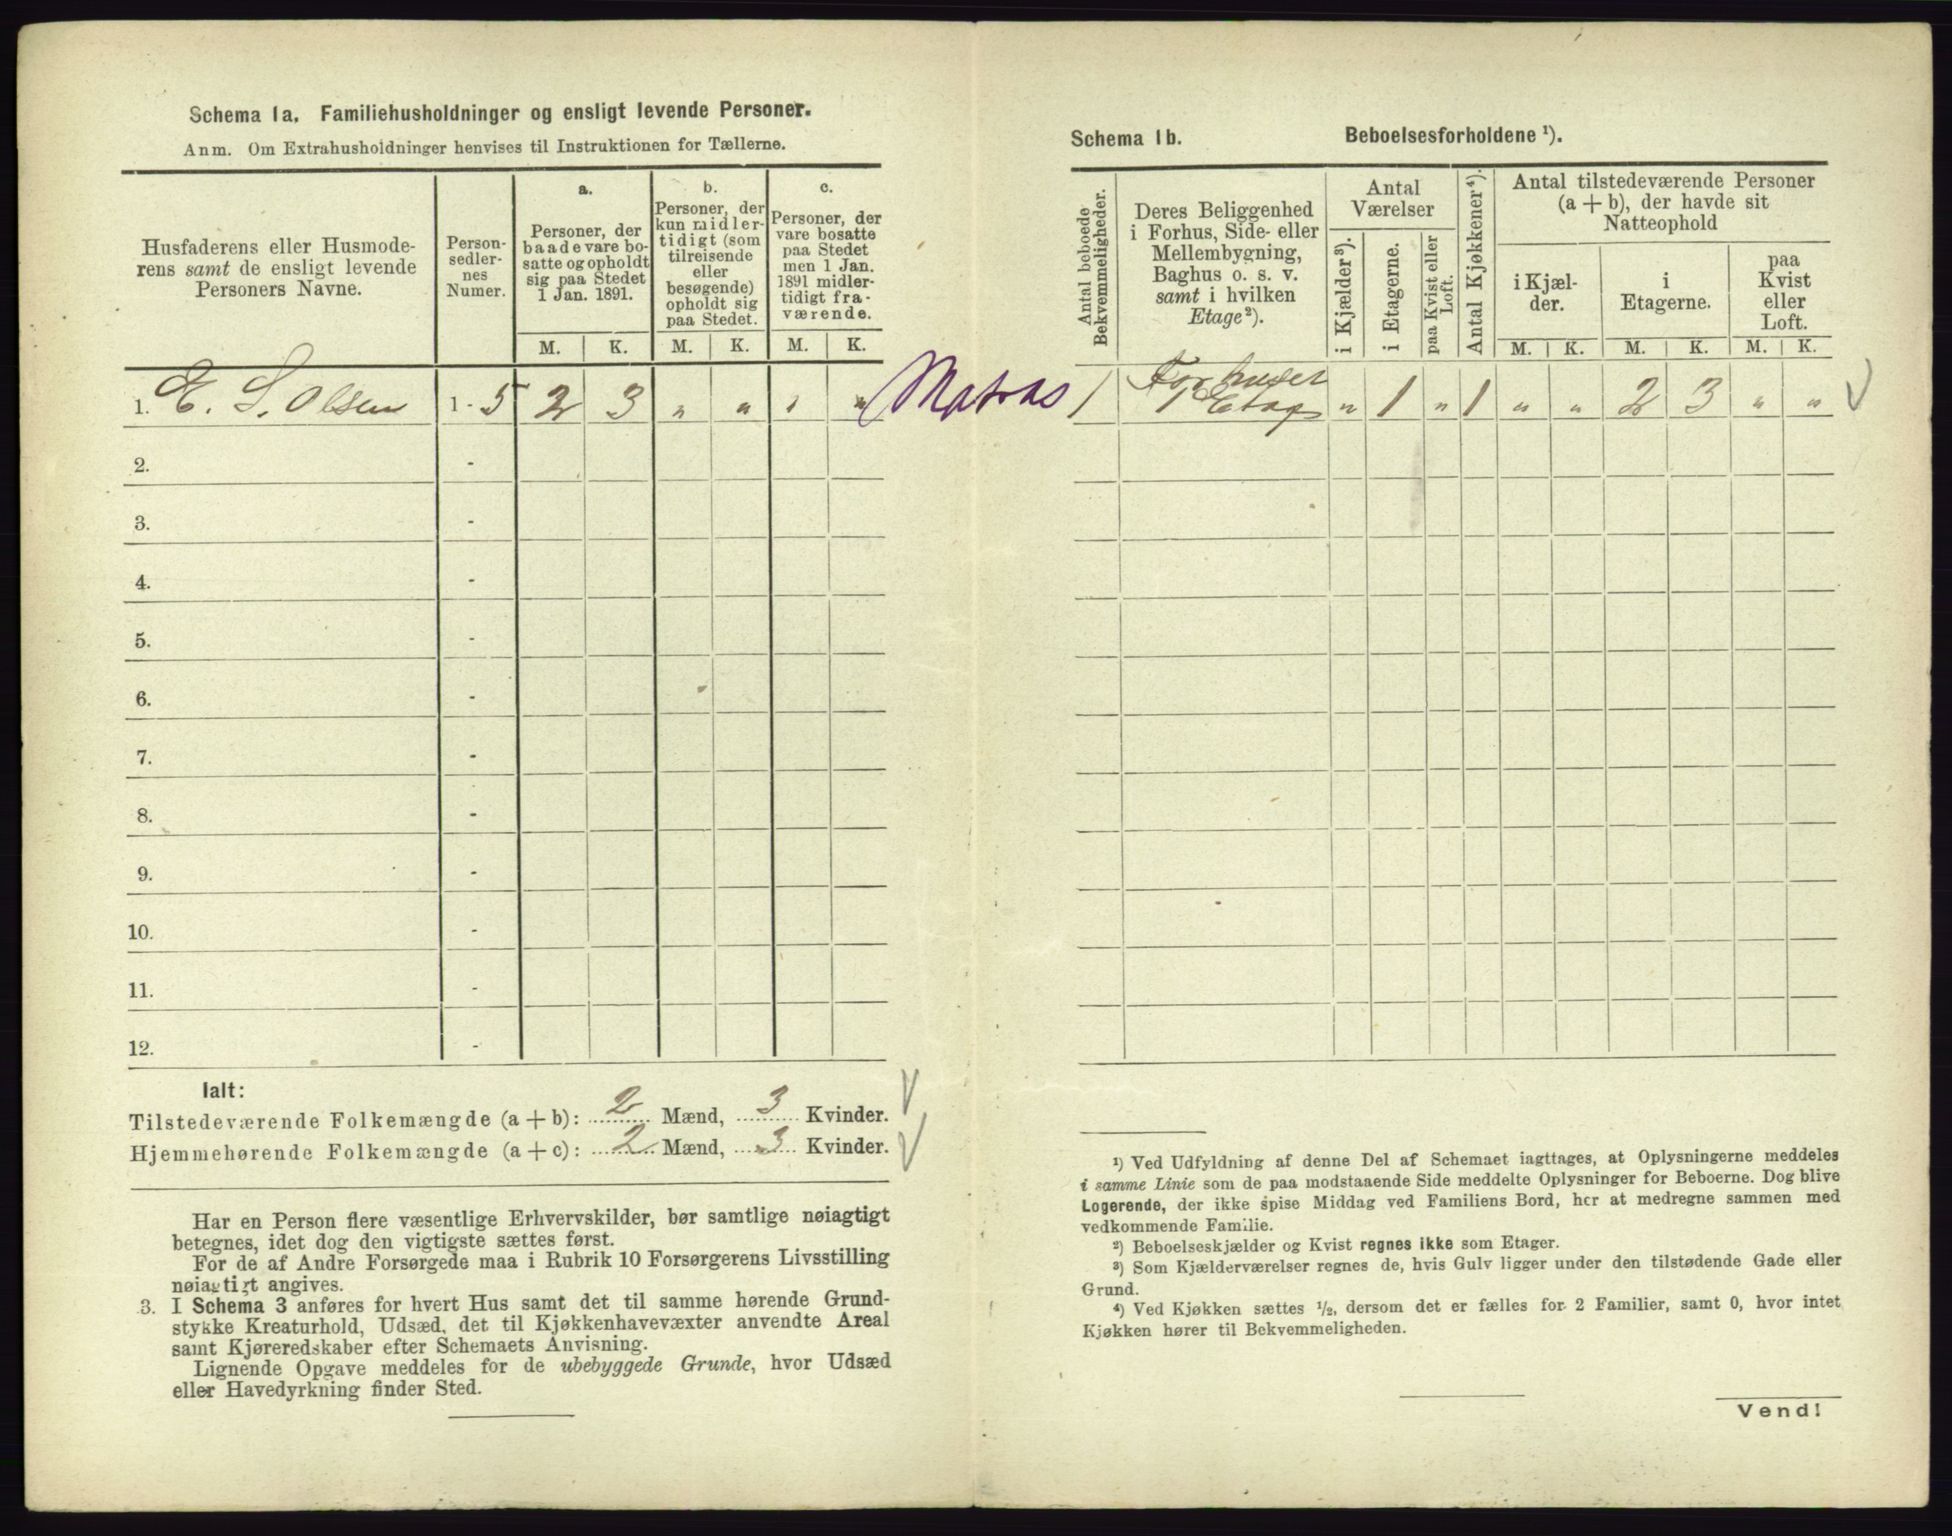 Schema 1a. Familiehusholdninger og ensligt levende Personer.
Anm. Om Extrahusholdninger henvises til Instruktionen for Tællerne.
Husfaderens eller Husmode-
rens samt de ensligt levende
Personers Navne.
Person-
sedler-
nes
Numer.
a.
Personer, der
baade vare bo-
satte og opholdt
sig paa Stedet
1 Jan. 1891.
b.
Personer, der
kun midler-
tidigt (som
tilreisende
eller
besøgende)
opholdt sig
paa Stedet.
c.
Personer, der
vare bosatte
paa Stedet
men 1 Jan.
1891 midler-
tidigt fra-
værende.
M. K. M. K. M. K.
1. E. S. Olsen 1-5 2 3 " " " "
2. -
3. -
4. -
5. -
6. -
7. -
8. -
9. -
10. -
11. -
12. -
Ialt:
Tilstedeværende Folkemængde (a + b): 2 Mænd, 3 Kvinder.
Hjemmehørende Folkemængde (a + c): 2 Mænd, 3 Kvinder.
Har en Person flere væsentlige Erhvervskilder, bør samtlige nøiagtigt
betegnes, idet dog den vigtigste sættes først.
For de af Andre Forsørgede maa i Rubrik 10 Forsørgerens Livsstilling
nøiagtigt angives.
3. I Schema 3 anføres for hvert Hus samt det til samme hørende Grund-
stykke Kreaturhold, Udsæd, det til Kjøkkenhavevæxter anvendte Areal
samt Kjøreredskaber efter Schemaets Anvisning.
Lignende Opgave meddeles for de ubebyggede Grunde, hvor Udsæd
eller Havedyrkning finder Sted.
Schema 1b. Beboelsesforholdene ¹).
Antal beboede
Bekvemmeligheder.
Deres Beliggenhed
i Forhus, Side- eller
Mellembygning,
Baghus o. s. v.
samt i hvilken
Etage²).
Antal
Værelser
i Kjælder³).
i Etagerne.
paa Kvist eller
Loft.
Antal Kjøkkener⁴).
Antal tilstedeværende Personer
(a + b), der havde sit
Natteophold
i Kjæl-
der.
i
Etagerne.
paa
Kvist
eller
Loft.
M. K. M. K. M. K.
Matras 1 Forhuset
1 Etage " 1 " 1 " " 2 3 " "
¹) Ved Udfyldning af denne Del af Schemaet iagttages, at Oplysningerne meddeles
i samme Linie som de paa modstaaende Side meddelte Oplysninger for Beboerne. Dog blive
Logerende, der ikke spise Middag ved Familiens Bord, her at medregne sammen med
vedkommende Familie.
²) Beboelseskjælder og Kvist regnes ikke som Etager.
³) Som Kjælderværelser regnes de, hvis Gulv ligger under den tilstødende Gade eller
Grund.
⁴) Ved Kjøkken sættes ½, dersom det er fælles for 2 Familier, samt 0, hvor intet
Kjøkken hører til Bekvemmeligheden.
Vend!